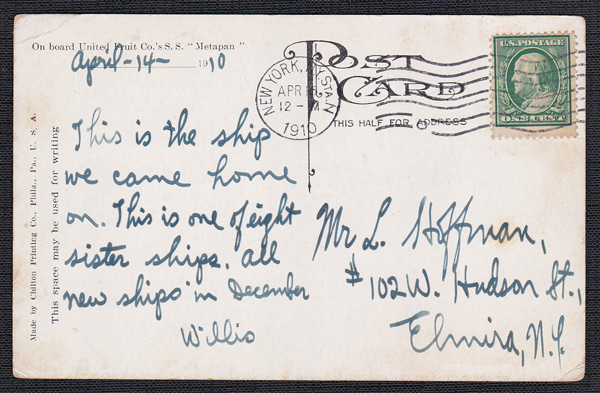 On board United Fruit Co.'s S.S. "Metapan"
April-14- 1910
This is the ship
we came home
on. This is one of eight
sister ships. all
new ships in December
Willis
Made by Chilton Printing Co., Phila., Pa., U. S. A.
This space may be used for writing
POST CARD
THIS HALF FOR ADDRESS
NEW YORK, N.Y. STA. N
APR
12 - M
1910
U.S. POSTAGE
ONE CENT
Mr L. Hoffman,
# 102 W. Hudson St.,
Elmira, N.Y.